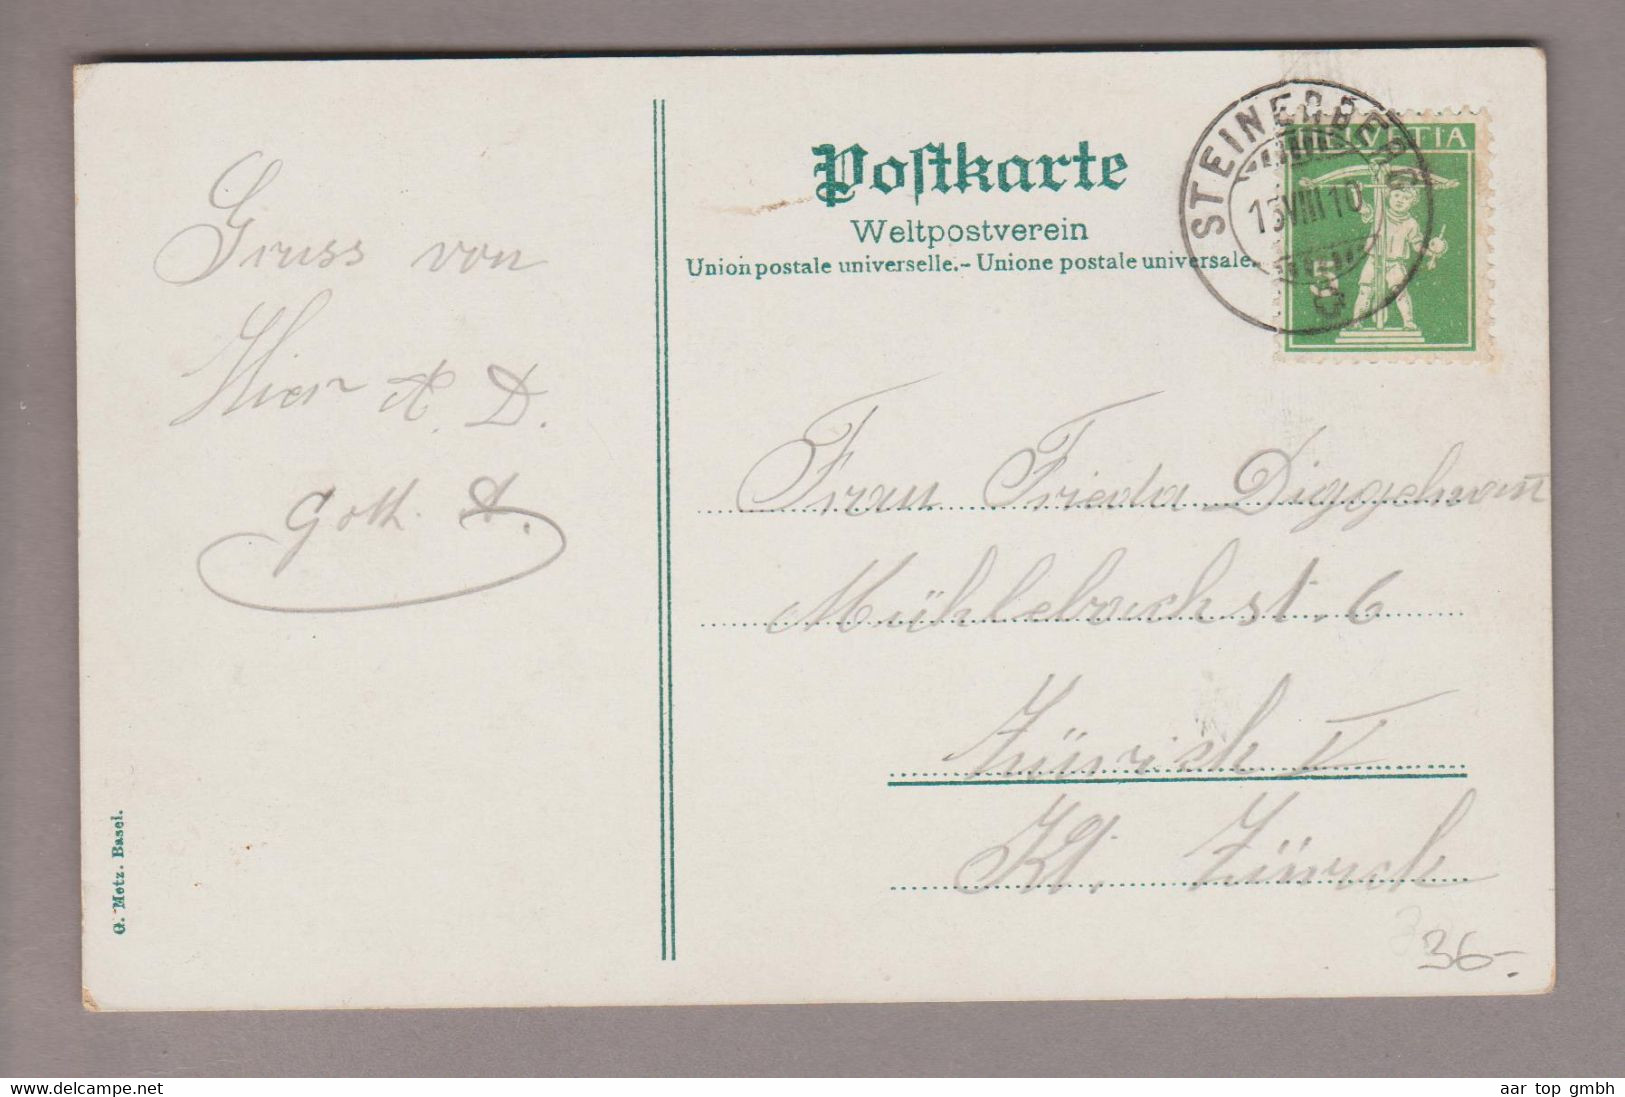 Postkarte
Weltpostverein
Union postale universelle. - Unione postale universale.
STEINERBERG
13 VIII 10
HELVETIA
Gruss von
Hier A. D.
Goth. A.
Frau Frieda Diggelmann
Mühlebachst. 6
Zürich V
Kt. Zürich
G. Metz. Basel.
36-.
aar top gmbh
delcampe.net